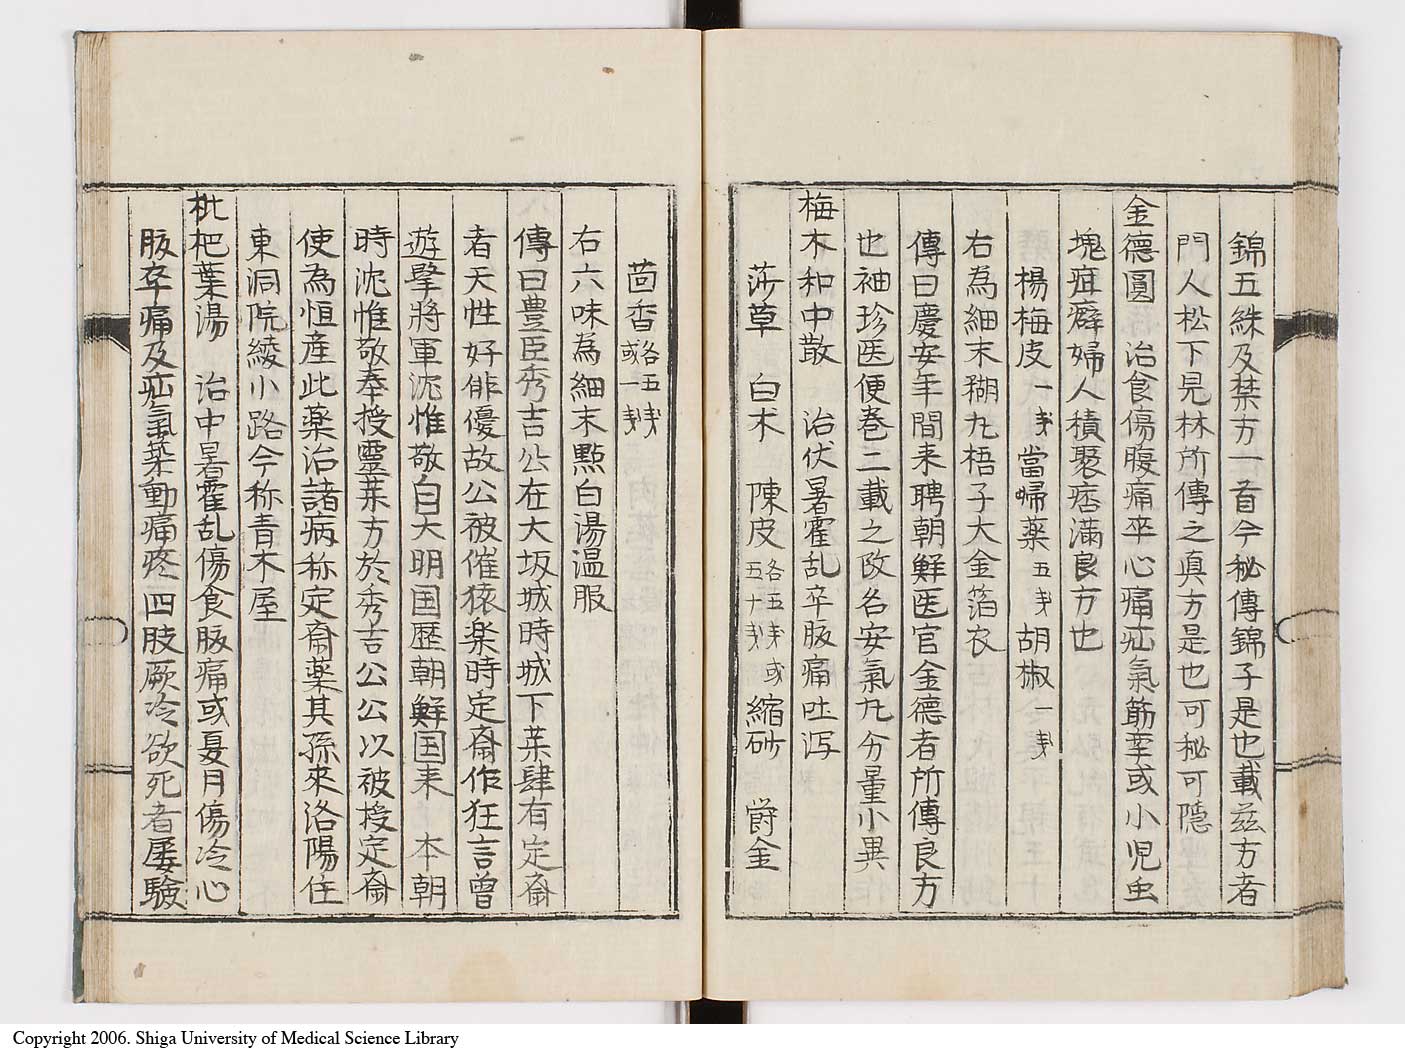 錦五絲及禁方一首今秘傳錦子是也載兹方者
門人松下見林所傳之眞方是也可秘可隱
金德圓　治食傷腹痛卒心痛疝氣筋牽或小児虫
塊疰癖婦人積聚痞滿良方也
楊梅皮一戔　當帰薬五戔　胡椒一戔
右為細末糊丸梧子大金箔衣
傳曰慶安年間来聘朝鮮医官金德者所傳良方
也袖珍医便巻二載之改名安氣丸分量小異
梅木和中散　治伏暑霍乱卒腹痛吐泻
莎草　白术　陳皮各五戔或五十戔　縮砂　欝金
茴香各五戔或一戔
右六味為細末㸃白湯温服
傳曰豊臣秀吉公在大坂城時城下薬肆有定斎
者天性好俳優故公被催猿楽時定斎作狂言曾
遊撃將軍沈惟敬自大明国歴朝鮮国来　本朝
時沈惟敬奉授靈薬方於秀吉公公以被授定斎
使為恒産此薬治諸病称定斎薬其孫來洛陽住
東洞院綾小路今称青木屋
枇杷葉湯　治中暑霍乱傷食腹痛或夏月傷冷心
腹卒痛及疝氣築動痛疼四肢厥冷欲死者屡驗
Copyright 2006. Shiga University of Medical Science Library